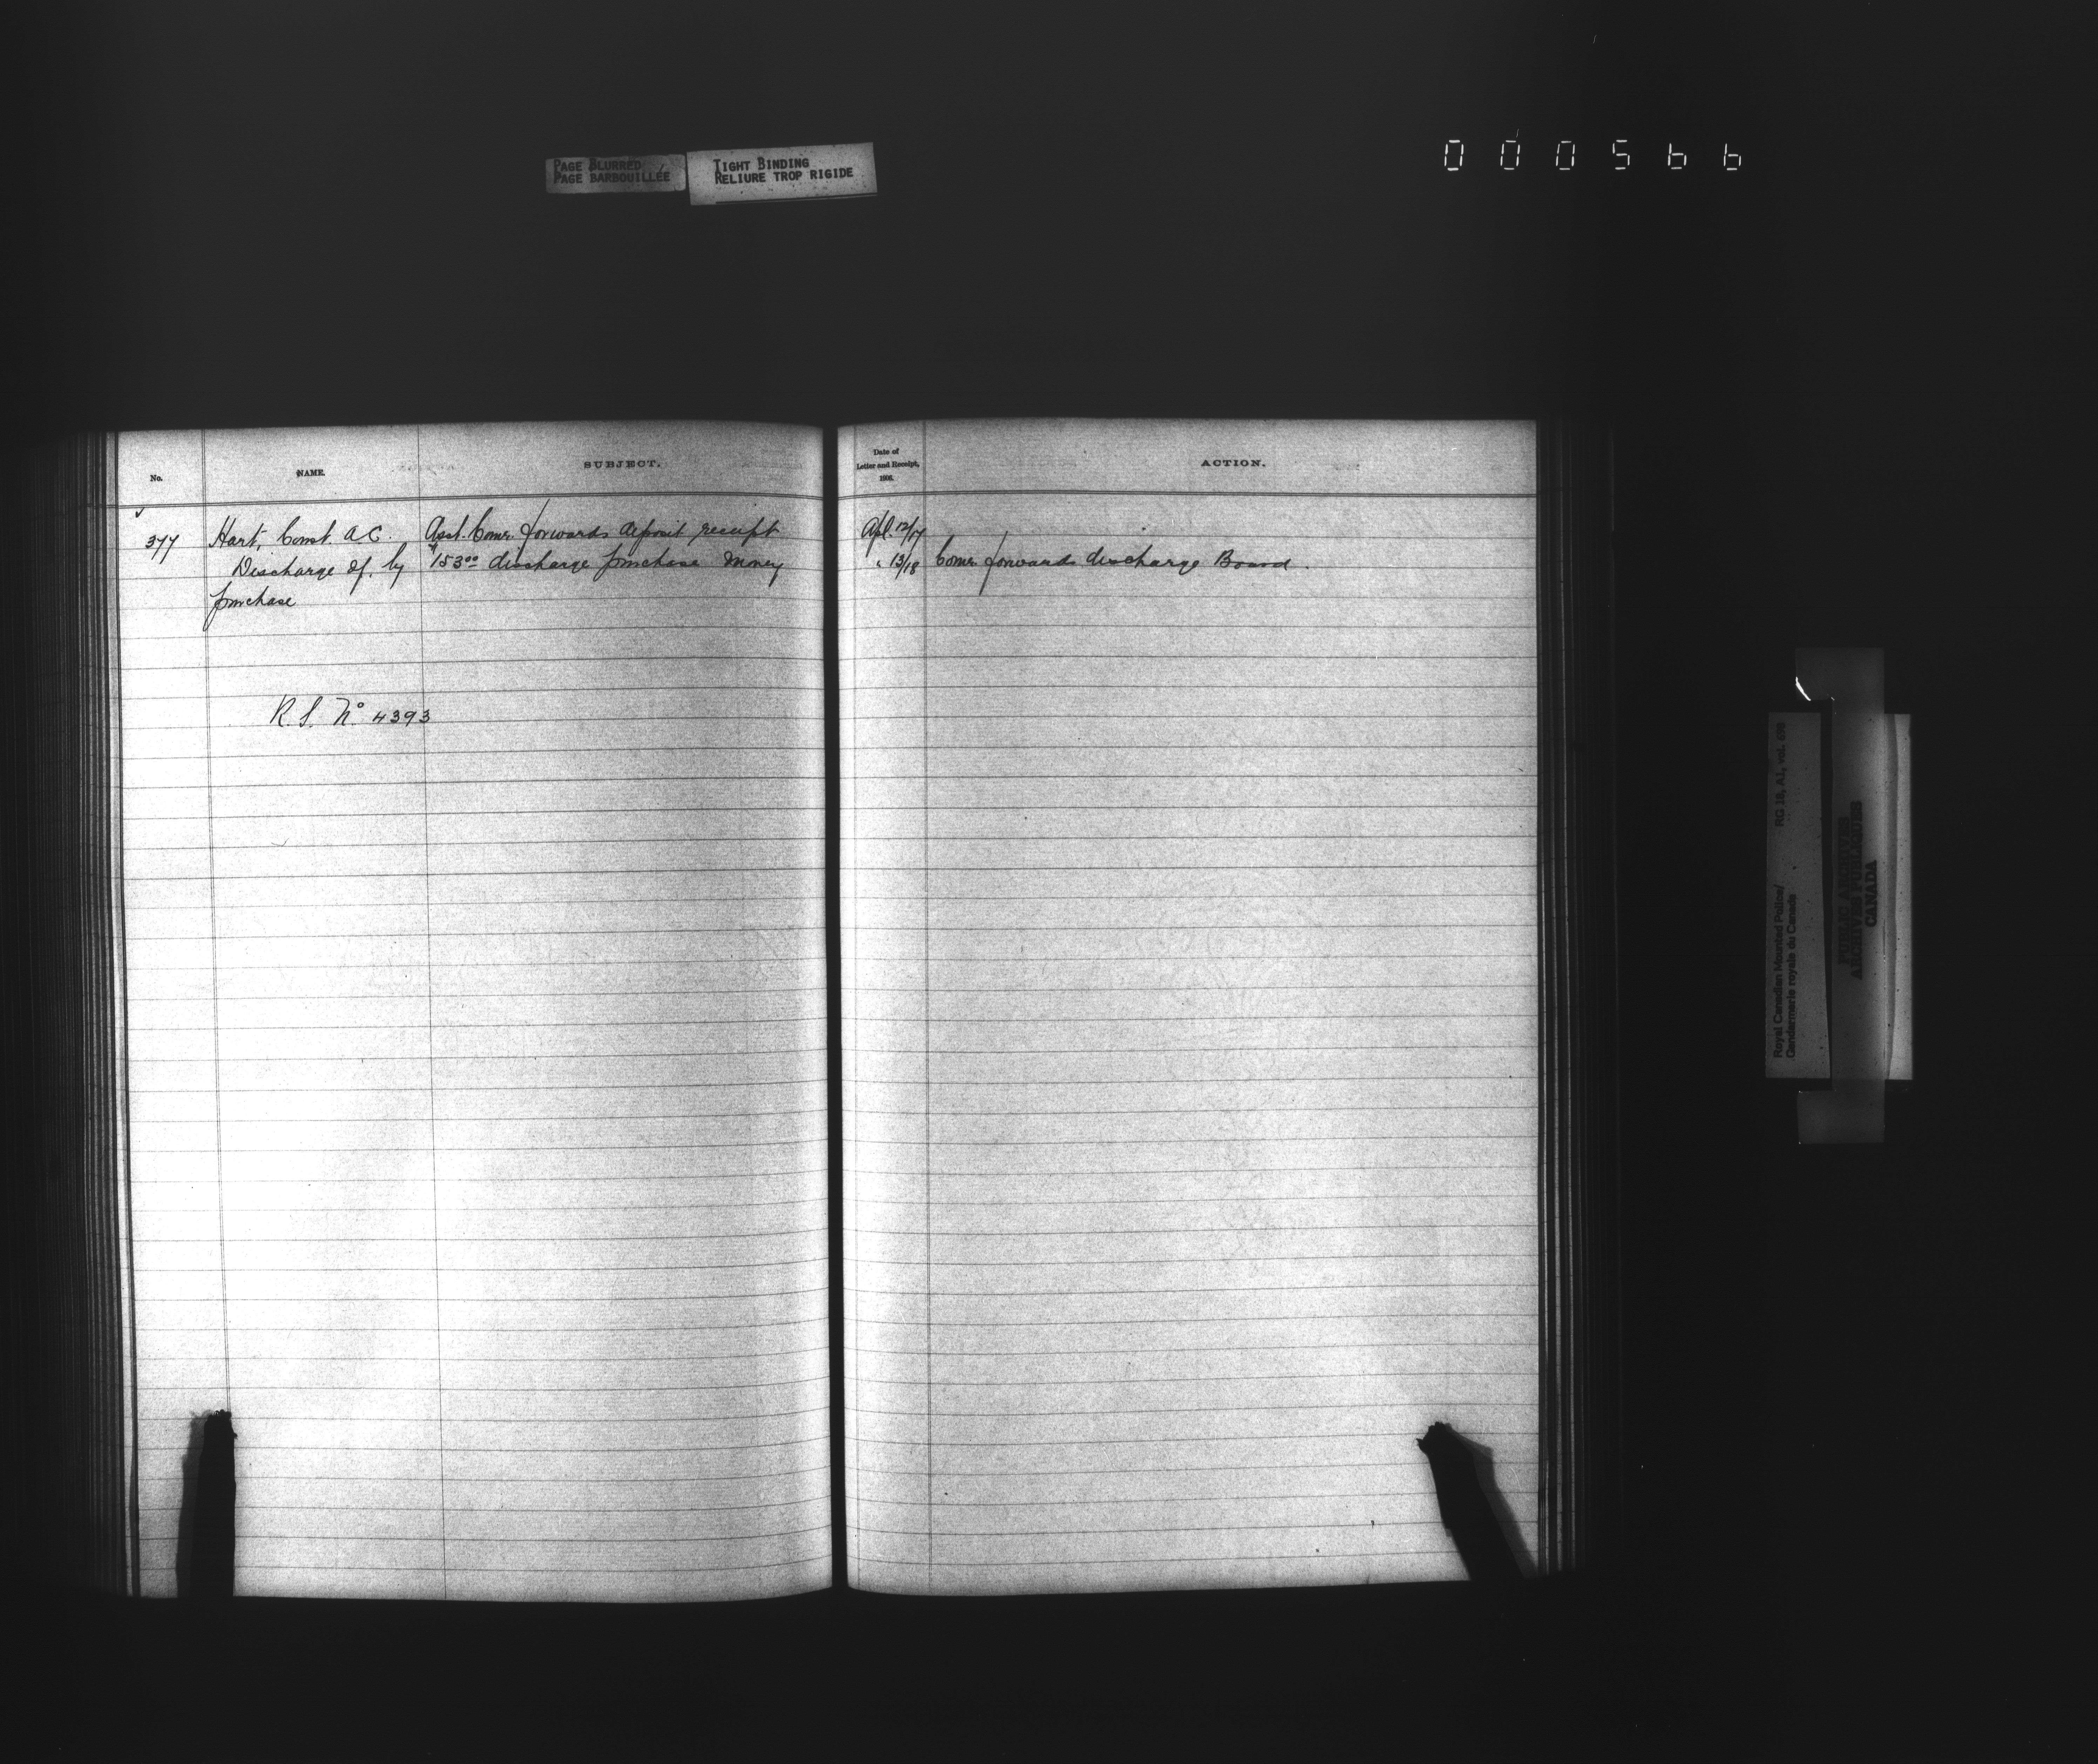 PAGE BLURRED
PAGE BARBOUILLÉE
TIGHT BINDING
RELIURE TROP RIGIDE
000566
No.
NAME.
SUBJECT.
Date of
Letter and Receipt,
1906.
ACTION.
377
Hart, Const. A.C.
Discharge of, by
purchase
Asst. Comr. forwards deposit receipt
$153.00 discharge purchase money
Apl. 12/17
" 13/18 Comr. forwards discharge Board.
R.S. No 4393
RG 18, A1, vol. 698
Royal Canadian Mounted Police/
Gendarmerie royale du Canada
PUBLIC ARCHIVES
ARCHIVES PUBLIQUES
CANADA